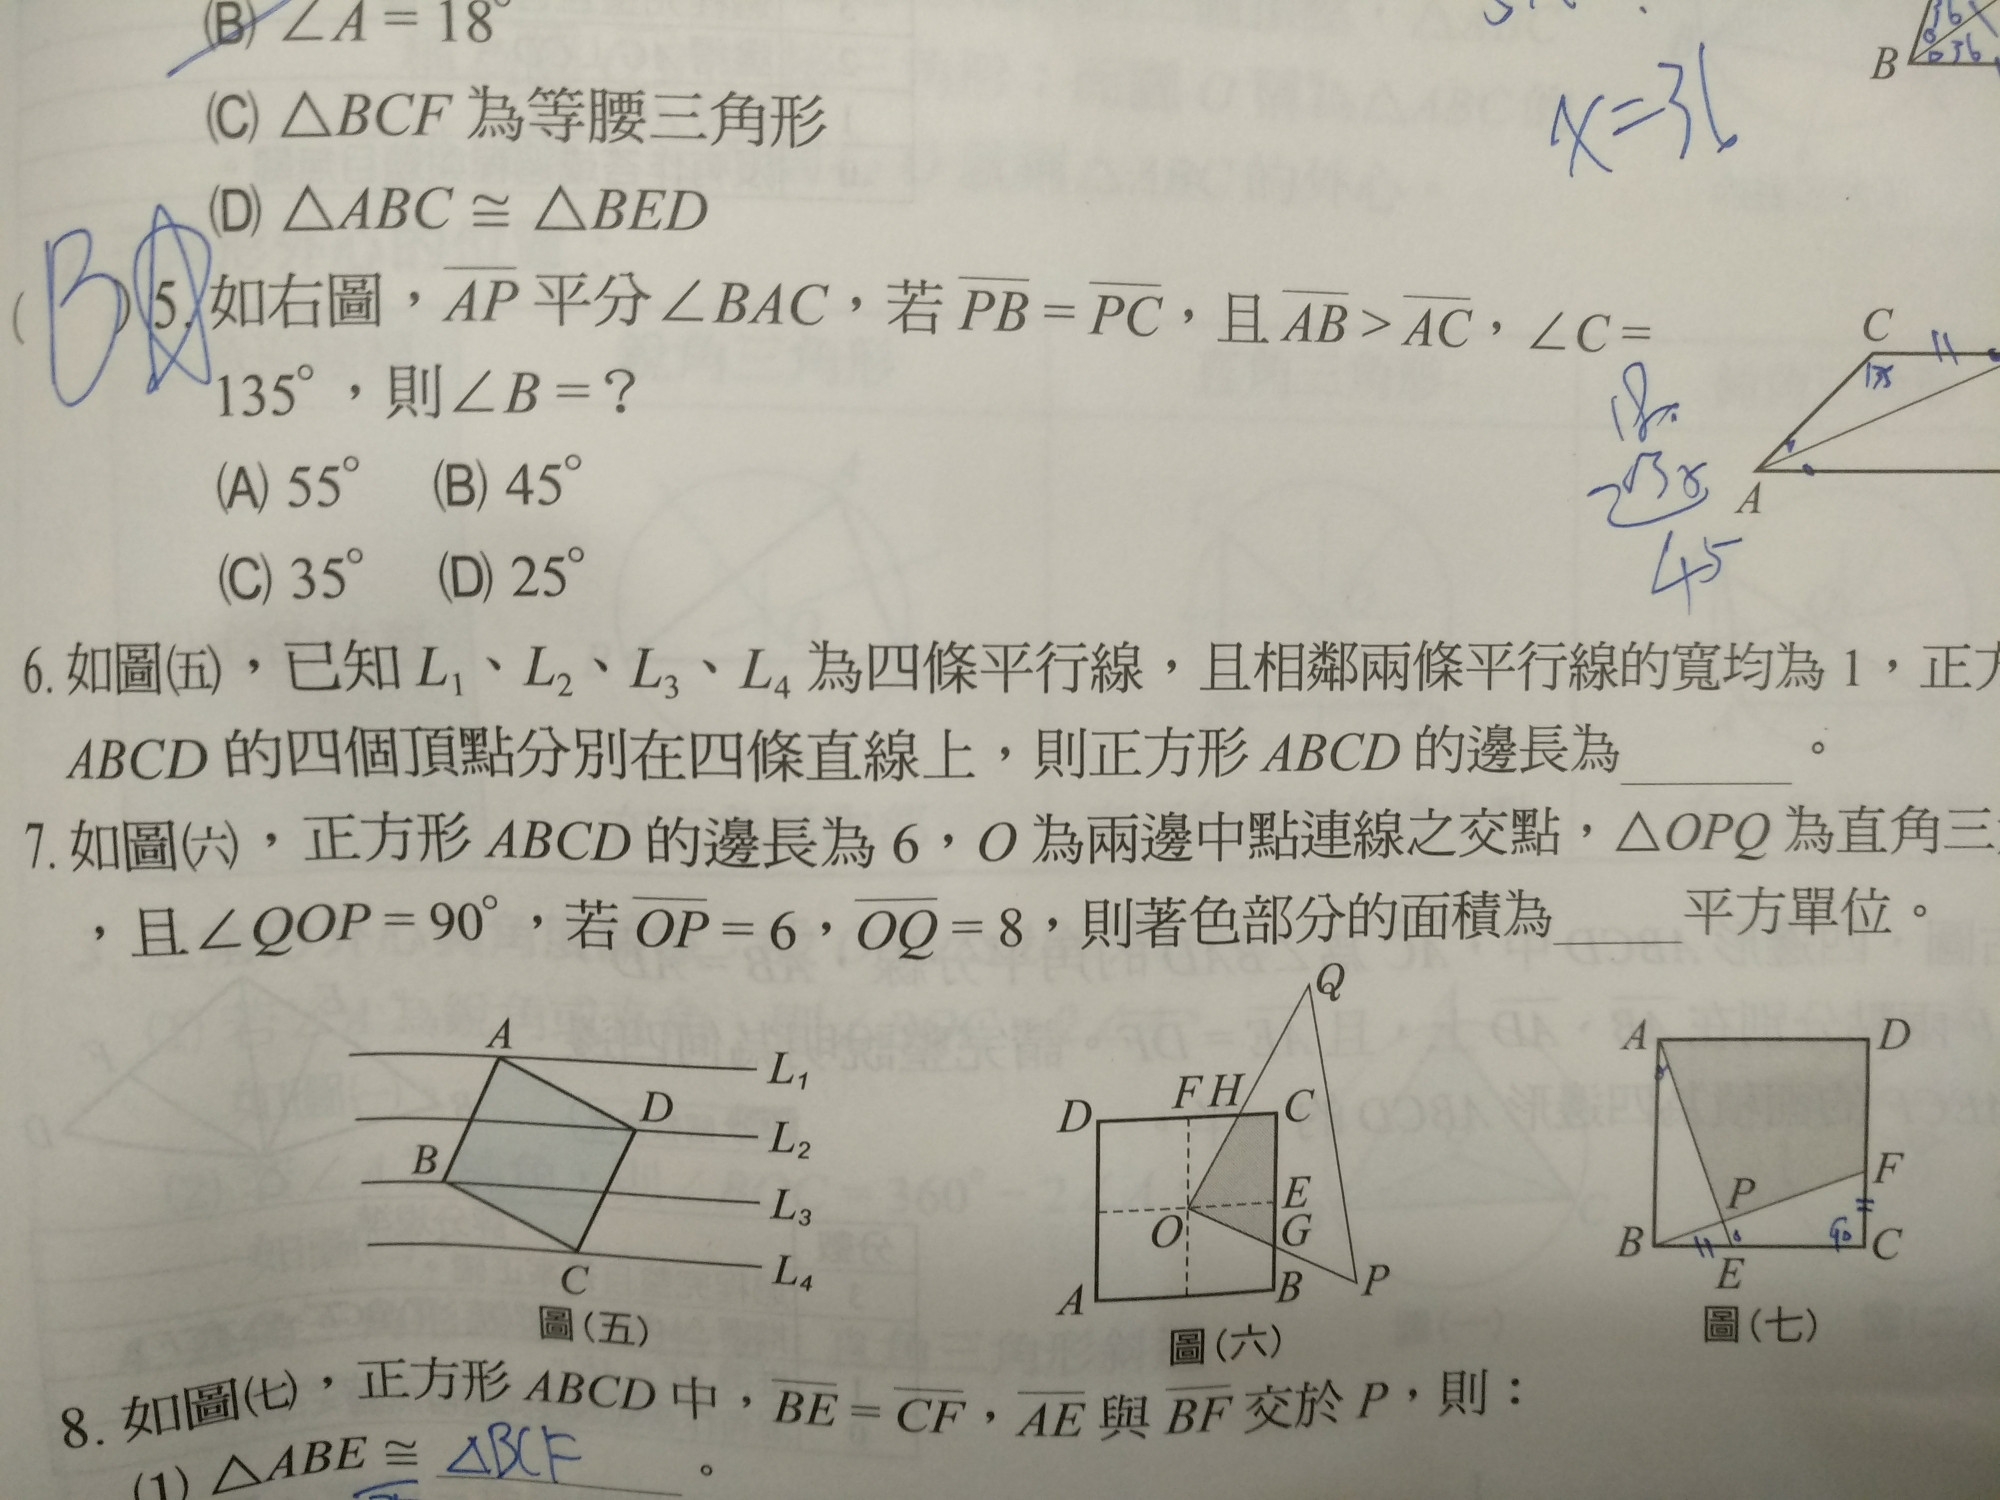 (B) ∠A = 18°
(C) △BCF 為等腰三角形
(D) △ABC ≅ △BED
x=36
B
36
36
( B ) 5. 如右圖，AP 平分∠BAC，若 PB = PC，且 AB > AC，∠C =
135°，則∠B = ？
(A) 55° (B) 45°
(C) 35° (D) 25°
C
135
A
45
6. 如圖(五)，已知 L₁、L₂、L₃、L₄ 為四條平行線，且相鄰兩條平行線的寬均為 1，正方
ABCD 的四個頂點分別在四條直線上，則正方形 ABCD 的邊長為______。
7. 如圖(六)，正方形 ABCD 的邊長為 6，O 為兩邊中點連線之交點，△OPQ 為直角三
，且∠QOP = 90°，若 OP = 6，OQ = 8，則著色部分的面積為____平方單位。
A
L₁
D
L₂
B
L₃
C
L₄
圖(五)
Q
D F H C
E
O G
A B P
圖(六)
A D
F
P
90
B E C
圖(七)
8. 如圖(七)，正方形 ABCD 中，BE = CF，AE 與 BF 交於 P，則：
(1) △ABE ≅ △BCF 。